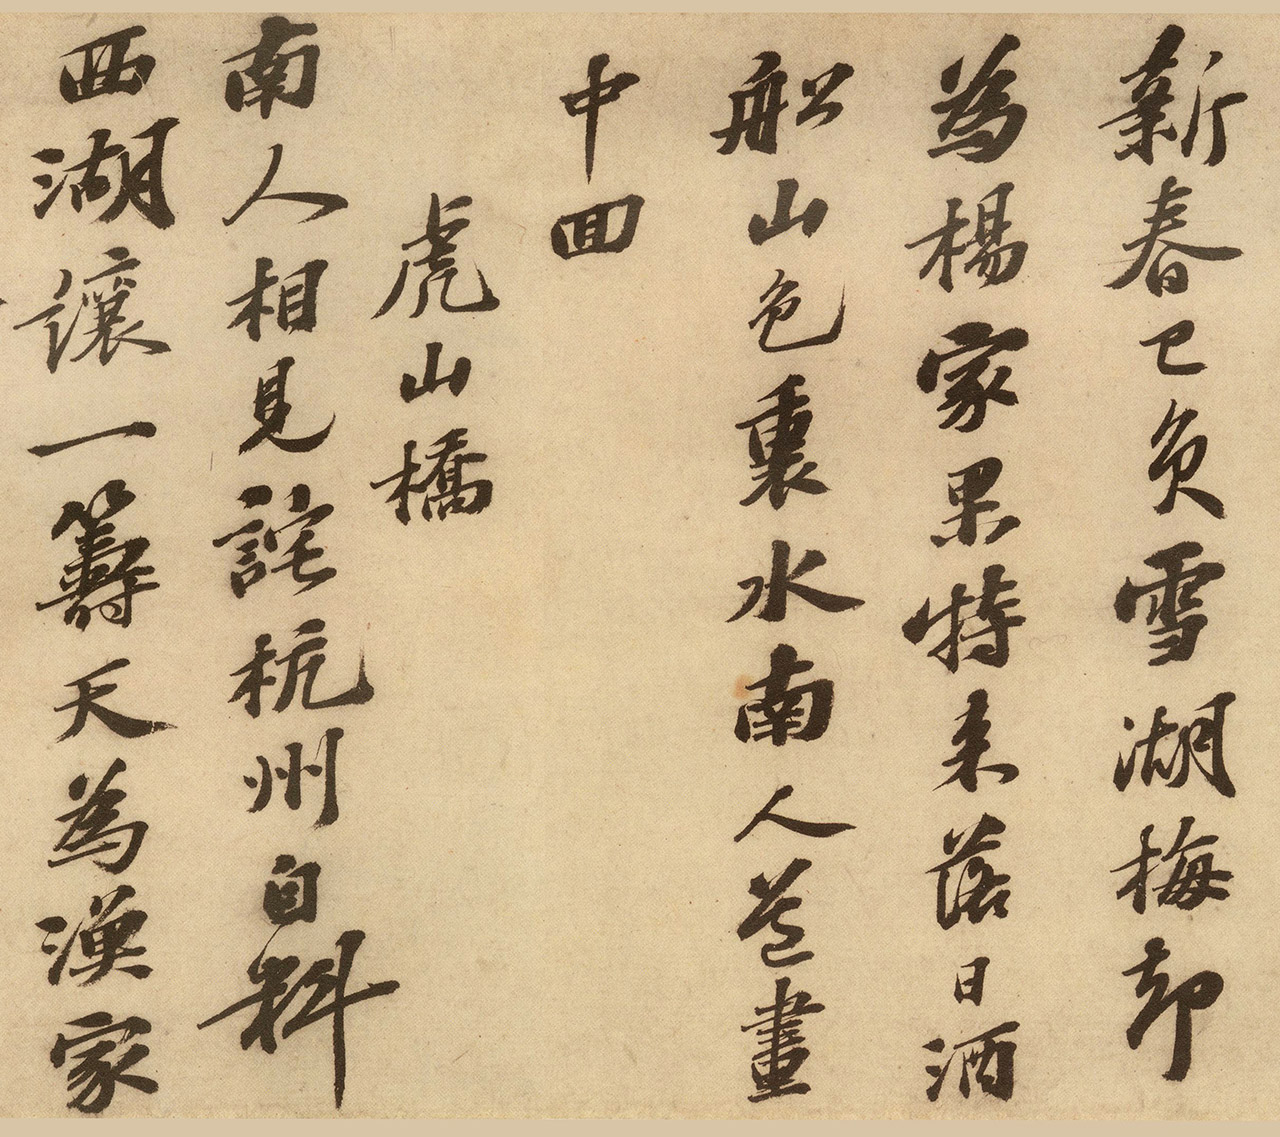 新春已負雪湖梅却
為楊家果特来落日酒
船山色裏水南人巷畫
中囬
虎山橋
南人相見詫杭州自料
西湖讓一籌天為漁家